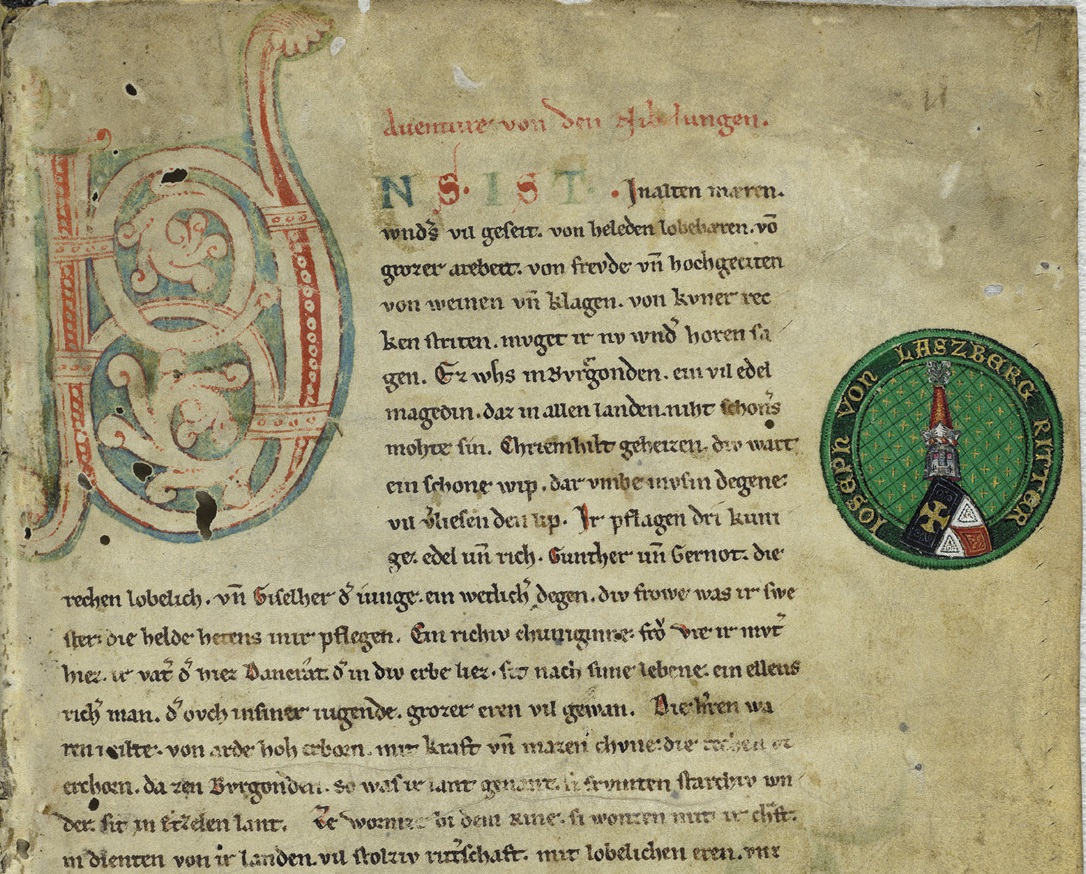 Auenture von den Nibelungen.
UNS. IST. Jnalten mæren.
wnðs vil geseit. von heleden lobebæren. võ
grozer arebeit. von frevde vñ hochgeciten
von weinen vñ klagen. von kvner rec
ken striten. mvget ir nv wnð horen sa
gen. Ez whs inBvrgonden. ein vil edel
magedin. daz in allen landen. niht schoners
mohte sin. Chriemhilt geheizen. div wart
ein schone wip. dar vmbe mvsin degene
vil vliesen den lip. Jr pflagen dri kuni
ge. edel uñ rich. Gunther uñ Gernot. die
rechen lobelich. vñ Giselher ð iunge. ein wetlich degen. div frowe was ir swe
ster. die helde hetens inir pflegen. Ein richiv chuniginne. frŏ Vte ir mvt
hiez. ir vat ð hiez Dancrat. ð in div erbe liez. sit nach sime lebene. ein ellens
rich man. ð ovch insiner iugende. grozer eren vil gewan. Die hren wa
ren milte. von arde hoh erborn. mit kraft vñ mazen chvne. die rechen
erchorn. da zen Bvrgonden. so was ir lant genant. si frvmten starchiv wn
der. sit in Etzelen lant. Ze wormze bi dem Rine. si wonten mit ir chft.
in dienten von ir landen. vil stolziv ritschaft. mit lobelichen eren. vnz
IOSEPH VON LASZBERG RITTER